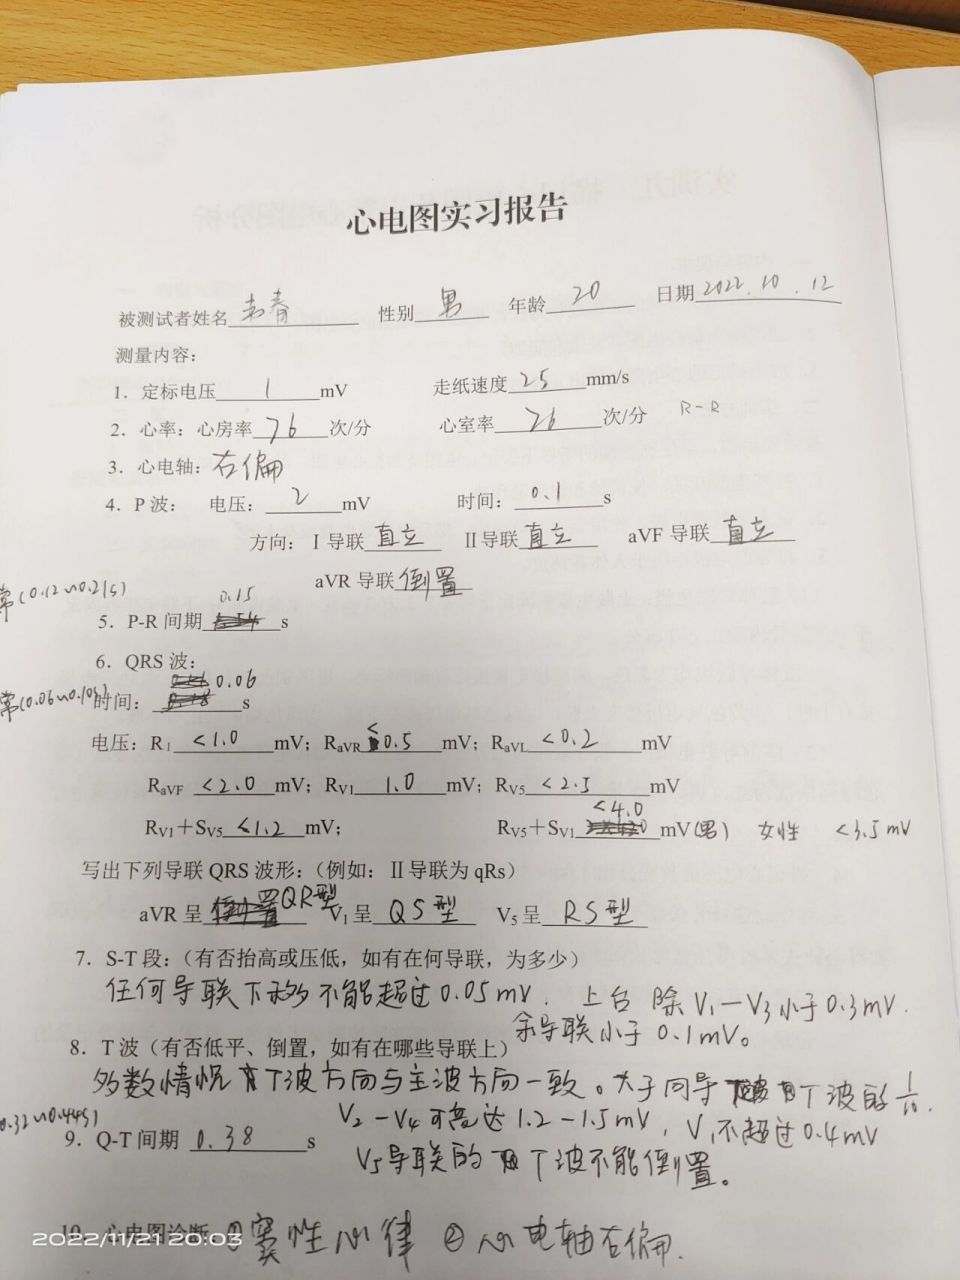 心电图实习报告
被测试者姓名 春 性别 男 年龄 20 日期 2022.10.12
测量内容:
1. 定标电压 1 mV 走纸速度 25 mm/s
2. 心率: 心房率 76 次/分 心室率 76 次/分 R-R
3. 心电轴: 右偏
4. P 波: 电压: 2 mV 时间: 0.1 s
方向: I 导联 直立 II 导联 直立 aVF 导联 直立
aVR 导联 倒置
常(0.12~0.21s) 0.15
5. P-R 间期 s
6. QRS 波:
常(0.06~0.10s) 时间: 0.06 s
电压: RI <1.0 mV; RaVR <0.5 mV; RaVL <0.2 mV
RaVF <2.0 mV; RV1 1.0 mV; RV5 <2.5 mV
RV1+SV5 <1.2 mV; RV5+SV1 <4.0 mV(男) 女性 <3.5mV
写出下列导联 QRS 波形: (例如: II 导联为 qRs)
aVR 呈 QR型 V1 呈 QS型 V5 呈 RS型
7. S-T 段: (有否抬高或压低, 如有在何导联, 为多少)
任何导联下移不能超过0.05mV. 上台 除V1-V3小于0.3mV.
余导联小于0.1mV。
8. T 波 (有否低平、倒置, 如有在哪些导联上)
多数情况 T波方向与主波方向一致。大于同导 T波的1/10.
V2-V4可高达1.2-1.5mV, V1不超过0.4mV
0.32~0.44s)
9. Q-T 间期 0.38 s
V5导联的 T波不能倒置。
10. 心电图诊断 ①窦性心律 ②心电轴右偏.
2022/11/21 20:03